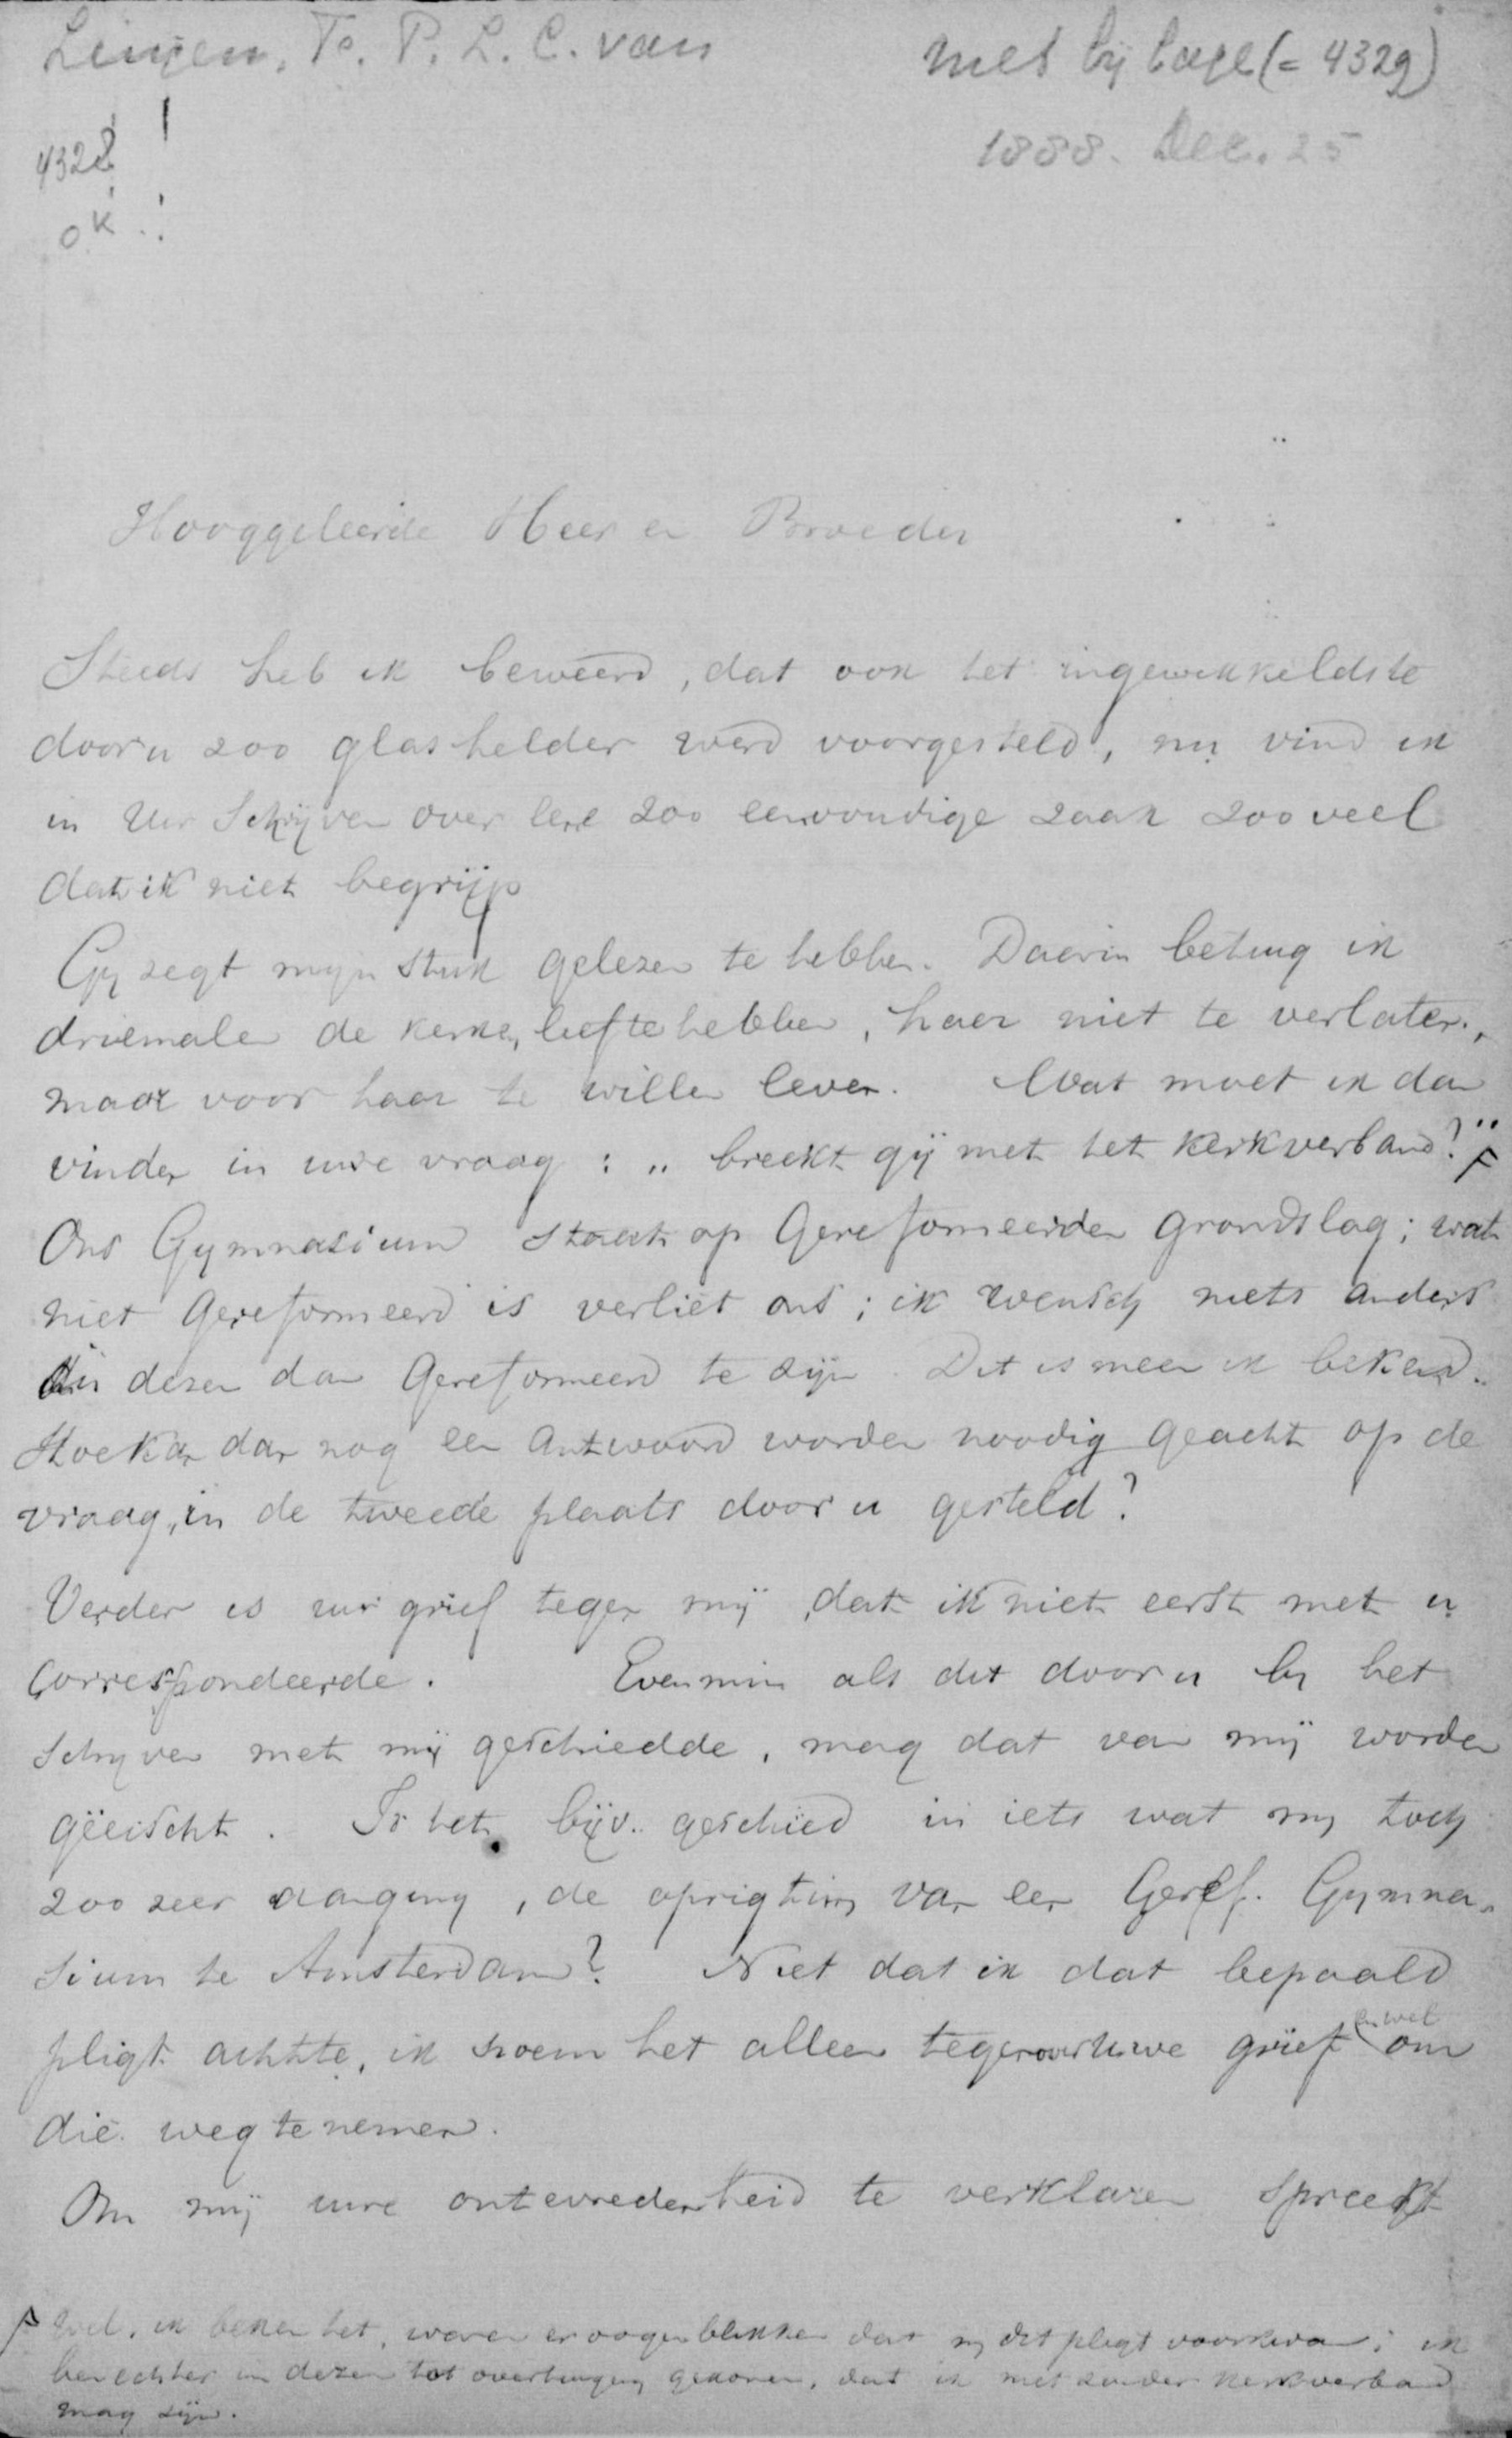 Lingen, F. P. L. C. van
met bijlage (= 4329)
4328 !
1888. Dec. 25
ok !
Hooggeleerde Heer en Broeder
Steeds heb ik beweerd, dat ook het ingewikkeldste
door u zoo glashelder werd voorgesteld, nu vind ik
in Uw Schrijven over eene zoo eenvoudige zaak zoo veel
dat ik niet begrijp
Gij zegt mijn stuk gelezen te hebben. Daarin betuig ik
driemalen de kerk lief te hebben, haar niet te verlaten,
maar voor haar te willen leven. Wat moet ik dan
vinden in uwe vraag: „breekt gij met het kerkverband?"
Ons Gymnasium staat op Gereformeerden grondslag; wat
niet Gereformeerd is verliet ons; ik wensch niets anders
in dezen dan Gereformeerd te zijn. Dit is meen ik bekend.
Hoe kan dan nog een antwoord worden noodig geacht op de
vraag, in de tweede plaats door u gesteld?
Verder is uw grief tegen mij, dat ik niet eerst met u
correspondeerde. Evenmin als dit door u bij het
schrijven met mij geschiedde, mag dat van mij worden
geëischt. Is het bijv. geschied in iets wat mij toch
zoo zeer aanging, de oprigting van een Geref. Gymna-
sium te Amsterdam? Niet dat ik dat bepaald
pligt achtte, ik noem het alleen tegenover uwe grief en wel om
die weg te nemen.
Om mij uwe ontevredenheid te verklaren spreekt
Wel, ik beken het, waren er oogenblikken dat mij dit pligt voorkwam; ik
ben echter in dezen tot overtuiging gekomen, dat ik niet zonder kerkverband
mag zijn.